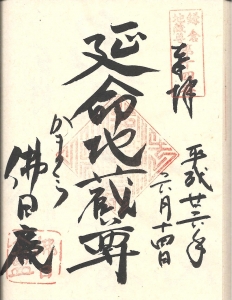 奉拝
平成廿六年
六月十四日
延命地蔵尊
かまくら
佛日庵